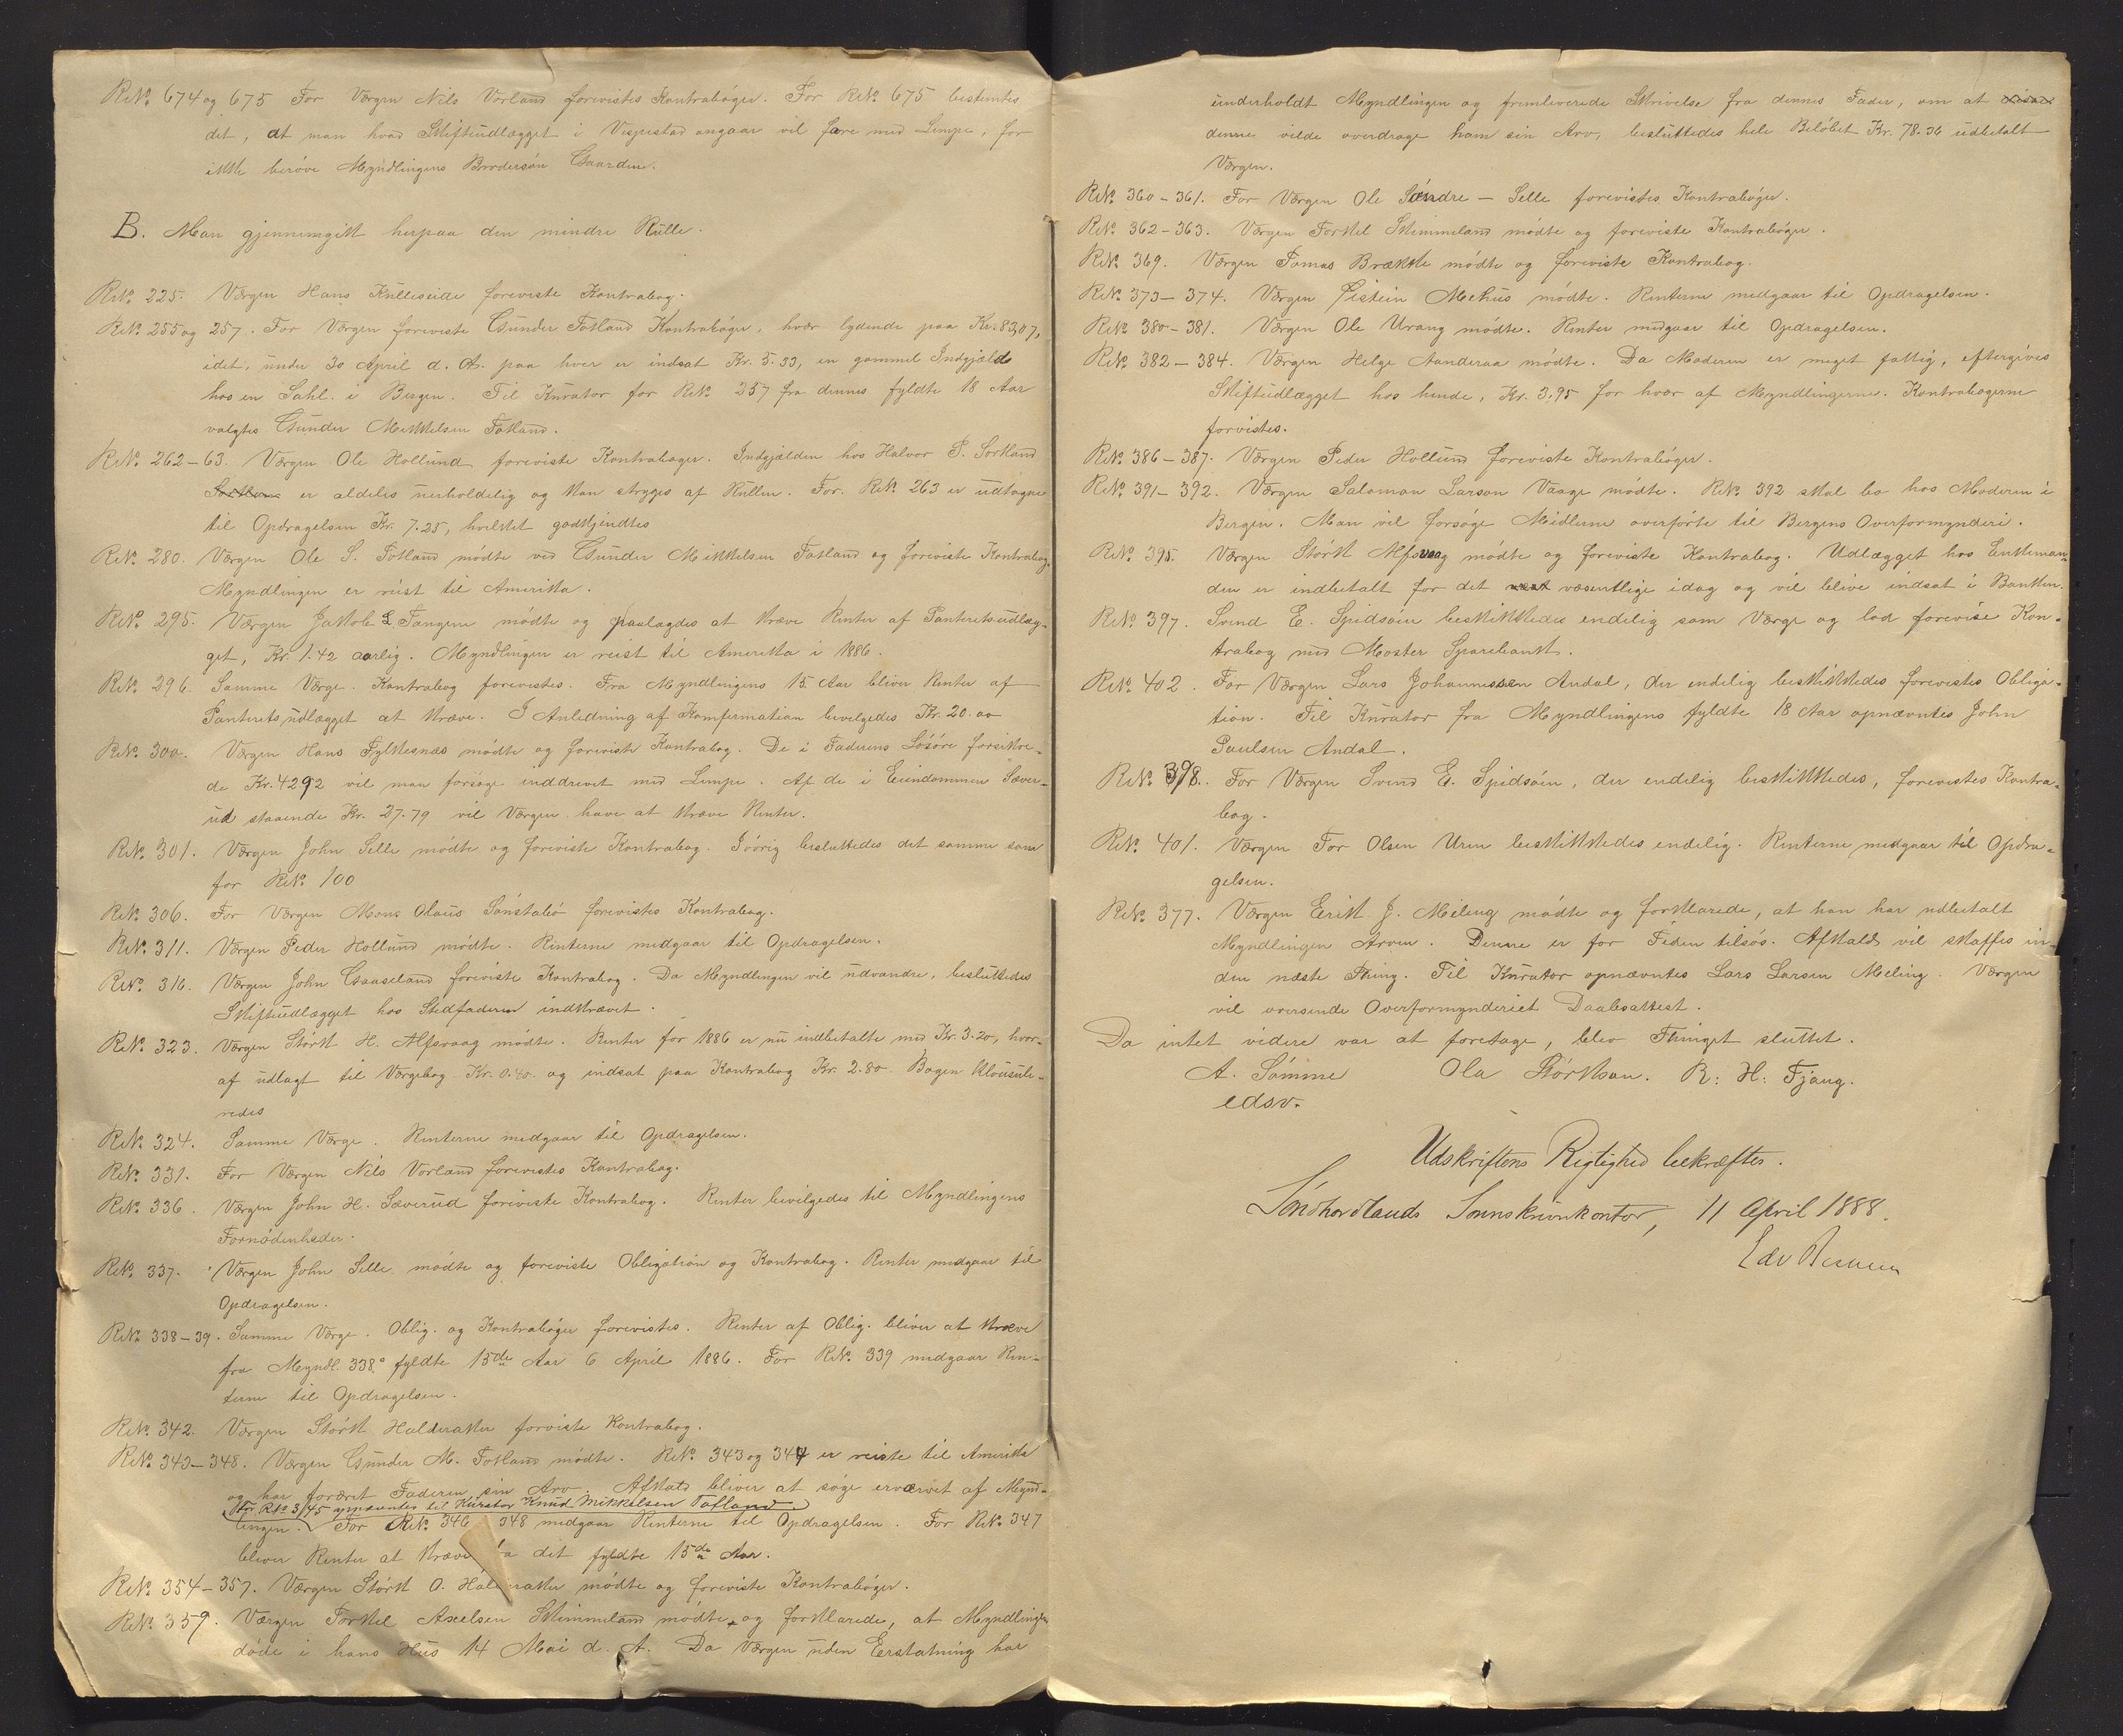 R.No. 674 og 675 For Værgen Nils Vorland forevistes Kontrabøger. For R.No. 675 bestemtes
det, at man hvad Skifteudlægget i Vespestad angaar vil fare med Lempe, for
ikke berøve Myndlingens Brodersøn Gaarden.
B. Man gjennemgikk herpaa den mindre Rulle.
R.No. 225. Værgen Hans Kulleseide foreviste Kontrabog.
R.No. 255 og 257. For Værgen foreviste Gunder Totland Kontrabøger, hver lydende paa Kr. 83,07,
idet, under 30 April d. A. paa hver er indsat Kr. 5.33, en gammel Indgjæld
hos en Sahl. i Bergen. Til Kurator for R.No. 257 fra dennes fyldte 18 Aar
valgtes Gunder Mikkelsen Totland.
R.No. 262-63. Værgen Ole Hollund foreviste Kontrabøger. Indgjælden hos Halvor P. Sortland
er aldeles uerholdelig og kan stryges af Rullen. For. R.No. 263 er udtagne
til Opdragelsen Kr. 7.25, hvilket godkjendtes
R.No. 280. Værgen Ole S. Totland mødte ved Gunder Mikkelsen Totland og foreviste Kontrabog.
Myndlingen er reist til Amerikka.
R.No. 295. Værgen Jakkob L. Tangene mødte og paalagdes at kræve Renter af Panteretsudlæg-
get, Kr. 1.42 aarlig. Myndlingen er reist til Amerikka i 1886.
R.No. 296. Samme Værge. Kontrabog forevistes. Fra Myndlingens 15. Aar bliver Renter af
Panteretsudlægget at kræve. I Anledning af Komfirmation bevilgedes Kr. 20.00
R.No. 300. Værgen Hans Fylkesnæs mødte og foreviste Kontrabog. De i Faderens Løsøre forsikre-
de Kr. 42,92 vil man forsøge inddrevet med Lempe. Af de i Eiendommen Sæver-
ud staaende Kr. 27.79 vil Værgen have at kræve Renter.
R.No. 301. Værgen John Selle mødte og foreviste Kontrabog. Iøvrig besluttedes det samme som
for R.No. 100
R.No. 306. For Værgen Mons Olaus Sønstabø forevistes Kontrabog.
R.No. 311. Værgen Peder Hollund mødte. Renterne medgaar til Opdragelsen.
R.No. 316. Værgen John Gaaseland foreviste Kontrabog. Da Myndlingen vil udvandre, besluttedes
Skifteudlægget hos Stedfaderen indkrævet.
R.No. 323. Værgen Størk H. Alfsvaag mødte. Renter for 1886 er nu indbetalte med Kr. 3.20, hvor-
af udlagt til Værgebog Kr. 0.40. og indsat paa Kontrabog Kr. 2.80 Bogen klousule-
redes
R.No. 324. Samme Værge. Renterne medgaar til Opdragelsen.
R.No. 331. For Værgen Nils Vorland forevistes Kontrabog.
R.No. 336. Værgen John H. Sæverud foreviste Kontrabog. Renter bevilgedes til Myndlingens
Fornødenheder.
R.No. 337. Værgen John Selle mødte og foreviste Obligation og Kontrabog. Renter medgaar til
Opdragelsen.
R.No. 338-39. Samme Værge. Oblig. og Kontrabøger forevistes. Renter af Oblig. bliver at kræve
fra Myndl. 338.s fyldte 15de Aar 6 April 1886. For R.No. 339 medgaar Ren-
terne til Opdragelsen.
R.No. 342. Værgen Størk Halderakker foreviste Kontrabog.
R.No. 343-348. Værgen Gunder M. Totland mødte. R.No. 343 og 344 er reiste til Amerikka
og har foræret Faderen sin Arv. Afkald bliver at søge erværvet af Mynd-
For R.No 345 opnævntes til Kurator Knud Mikkelsen Totland
lingen. For R.No. 346 348 medgaar Renterne til Opdragelsen. For R.No. 347
bliver Renter at kræve fra det fyldte 15de Aar.
R.No. 354-357. Værgen Størk O. Halderakker mødte og foreviste Kontrabøger.
R.No. 359. Værgen Torkel Axelsen Skimmeland mødte og forklarede, at Myndlingen
døde i hans Hus 14 Mai d. A. Da Værgen uden Erstatning har
underholdt Myndlingen og fremleverede Skrivelse fra dennes Fader, om at
denne vilde overdrage ham sin Arv, besluttedes hele Beløbet Kr. 78.36 udbetalt
Værgen.
R.No. 360-361. For Værgen Ole Søndre - Selle forevistes Kontrabøger.
R.No. 362-363. Værgen Torkel Skimmeland mødte og foreviste Kontrabøger.
R.No. 369. Værgen Tomas Brække mødte og foreviste Kontrabog.
R.No. 373-374. Værgen Øistein Mehus mødte. Renterne medgaar til Opdragelsen.
R.No. 380-381. Værgen Ole Urang mødte. Renter medgaar til Opdragelsen.
R.No. 382-384. Værgen Helge Aanderaa mødte. Da Moderen er meget fattig, eftergives
Skifteudlægget hos hende, Kr. 3.95 for hver af Myndlingerne. Kontrabøgerne
forvistes.
R.No. 386-387. Værgen Peder Hollund foreviste Kontrabøger.
R.No. 391-392. Værgen Salomon Larson Vaage mødte. R.No. 392 skal bo hos Moderen i
Bergen. Man vil forsøge Midlerne overførte til Bergens Overformynderi.
R.No. 395. Værgen Størk Alfsvaag mødte og foreviste Kontrabog. Udlægget hos Enkeman-
den er indbetalt for det væsentlige idag og vil blive indsat i Banken.
R.No. 397. Svend E. Spidsøen beskikkedes endelig som Værge og lod forevise Kon-
trabog med Moster Sparebank.
R.No. 402. For Værgen Lars Johannessen Andal, der endelig beskikkedes forevistes Obliga-
tion. Til Kurator fra Myndlingens fyldte 18 Aar opnævntes John
Paulsen Andal.
R.No. 398. For Værgen Svend E. Spidsøen, der endelig beskikkedes, forevistes Kontra-
bog.
R.No. 401. Værgen Tor Olsen Uren beskikkedes endelig. Renterne medgaar til Opdra-
gelsen.
R.No. 377. Værgen Erik J. Meling mødte og forklarede, at han har udbetalt
Myndlingen Arven. Denne er for Tiden tilsøs. Afkald vil skaffes in-
den næste Thing. Til Kurator opnævntes Lars Larsen Meling. Værgen
vil oversende Overformynderiet Daabsattest.
Da intet videre var at foretage, blev Thinget sluttet.
A. Sømme Ola Størkson. R: H: Fjang.
edsv.
Udskriftens Rigtighed bekræftes.
Søndhordlands Sorenskriverkontor, 11 April 1888.